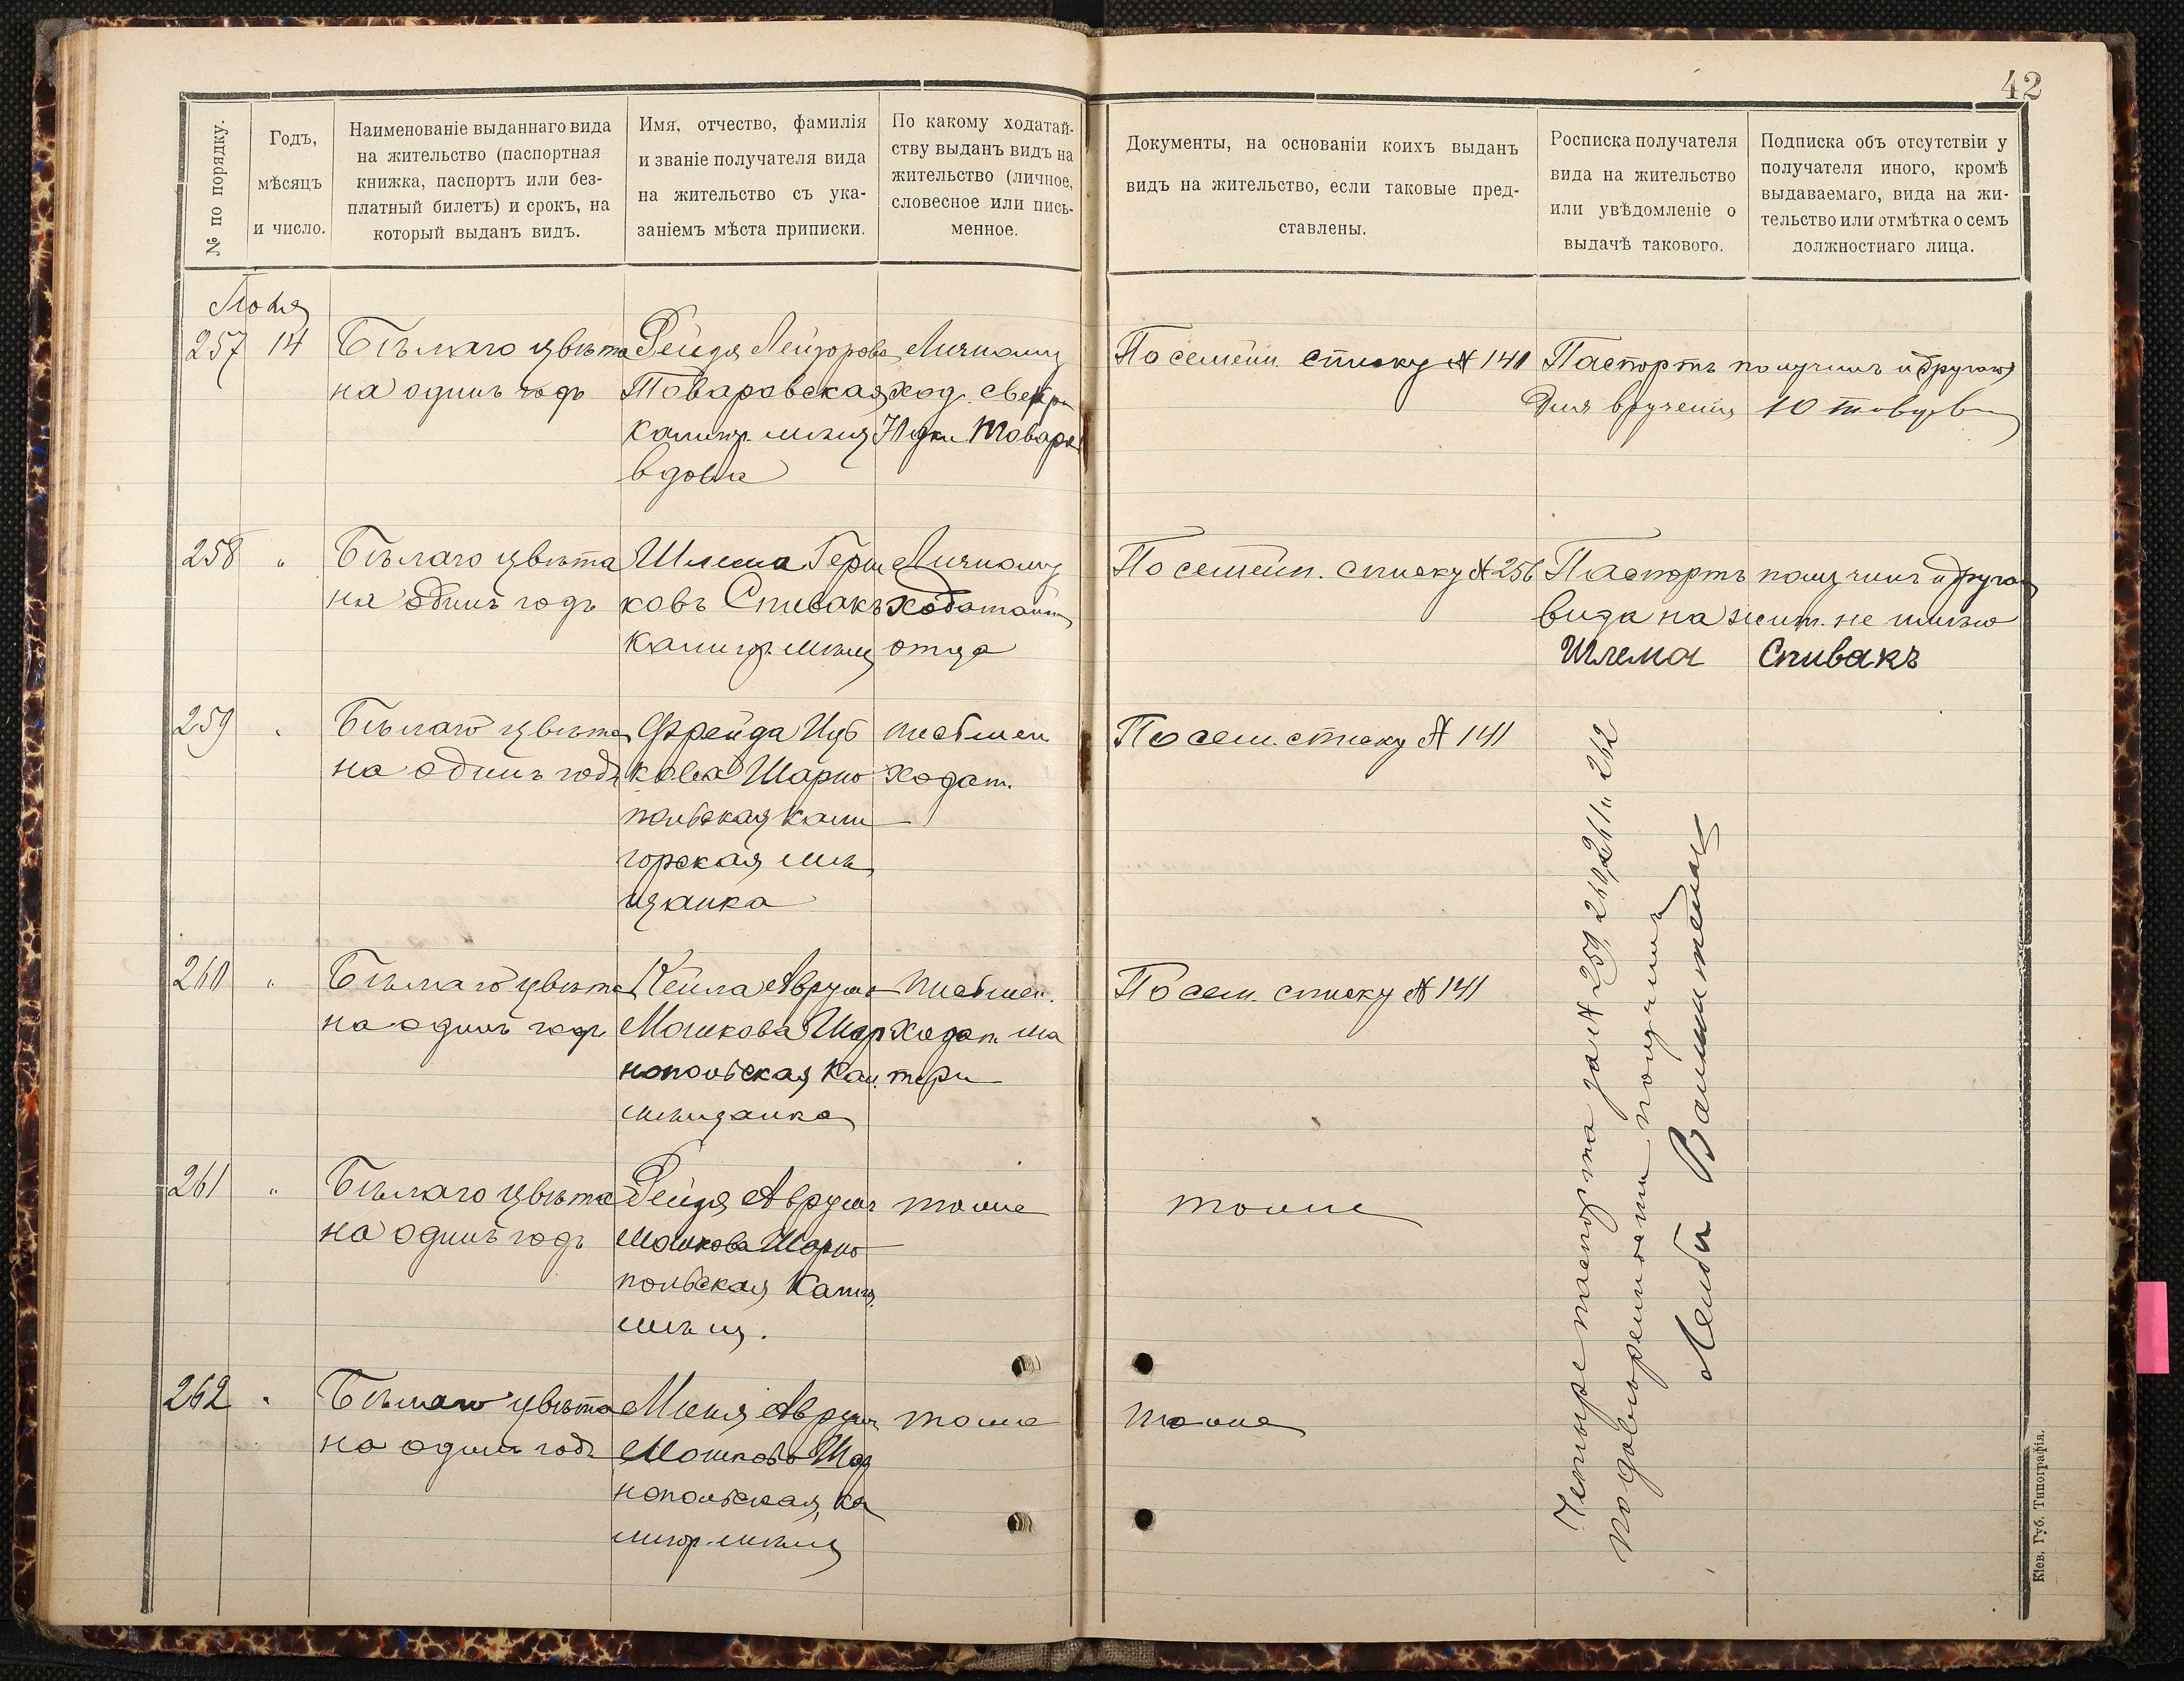 42
№ по порядку.
Годъ,
мѣсяцъ
и число.
Наименованіе выданнаго вида
на жительство (паспортная
книжка, паспортъ или без-
платный билетъ) и срокъ, на
который выданъ видъ.
Имя, отчество, фамилія
и званіе получателя вида
на жительство съ ука-
заніемъ мѣста приписки.
По какому ходатай-
ству выданъ видъ на
жительство (личное,
словесное или пись-
менное.
Документы, на основаніи коихъ выданъ
видъ на жительство, если таковые пред-
ставлены.
Росписка получателя
вида на жительство
или увѣдомленіе о
выдачѣ такового.
Подписка объ отсутствіи у
получателя иного, кромѣ
выдаваемаго, вида на жи-
тельство или отмѣтка о семъ
должностнаго лица.
257 14
Бѣлаго цвѣта
на одинъ годъ
Рейзя Лейзорова
Товаровская
калигор. мѣщ
вдова
Личному
ход. свекри
По семейн. списку № 141
Паспортъ получилъ и другого
для врученія
258 "
Бѣлаго цвѣта
на одинъ годъ
Шлема Герш
ковъ Спивакъ
Калигор. мѣщ
Личному
ходатайст
отца
По семейн. списку № 256
Паспортъ получилъ и другого
вида на жит. не имѣю
Шлема Спивакъ
259 "
Бѣлаго цвѣта
на одинъ годъ
Фрейда Иць
кова Шарно
польская кали
горская мѣ
щанка
письмен
ходат.
По сем. списку № 141
260 "
Бѣлаго цвѣта
на одинъ годъ
Кейла Аврумъ
Мошкова Шар
нопольская Кал.
мѣщанка
письмен.
ходат. ма
тери
По сем. списку № 141
261 "
Бѣлаго цвѣта
на одинъ годъ
Рейзя Аврумъ
Мошкова Шарно
польская Калиг.
мѣщ.
тоже
тоже
262 "
Бѣлаго цвѣта
на одинъ годъ
Миня Аврумъ
Мошкова Шар
нопольская, ка
лигор. мѣщ
тоже
тоже
Четыре паспорта за № 259, 260, 261 и 262
по довѣренности получилъ
Лейби Вайнштейнъ
Кіев. Губ. Типографія.